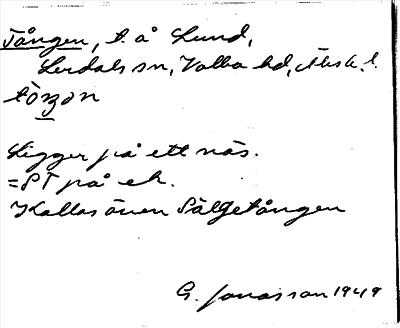 Tången, t. å Lund,
Lerdals sn, Valbo hd, Älvsb. l.
Ligger på ett näs.
= ST på ek.
Kallas även Sälgetången
G. Jonasson 1949